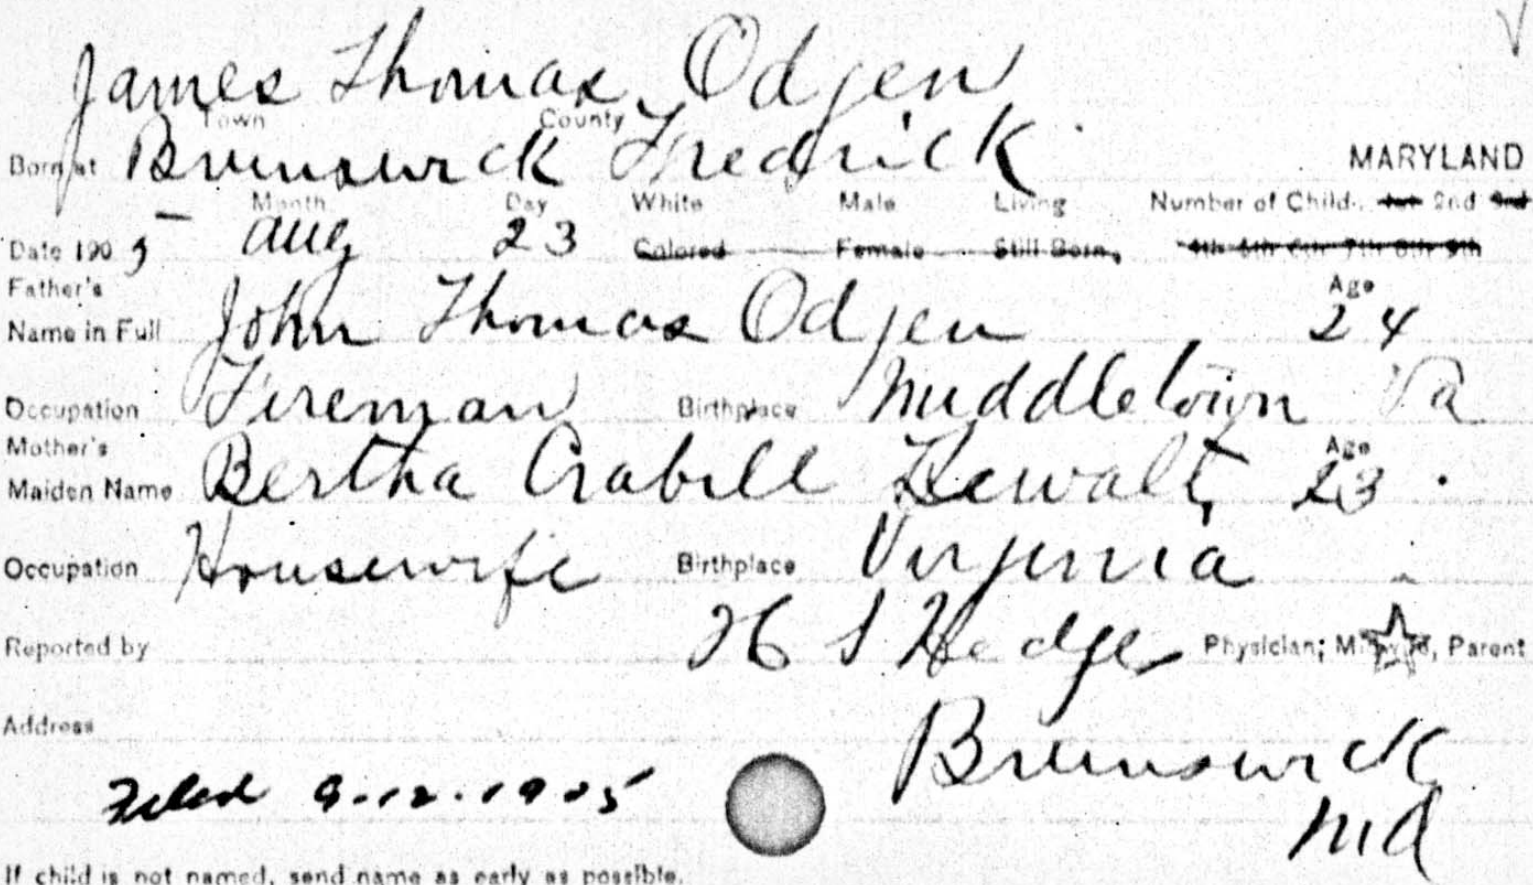 James Thomas Odjen
Town County
Born at Brunswick Fredrick MARYLAND
Month Day White Male Living Number of Child 1st 2nd 3rd
Date 190 5 Aug 23 Colored Female Still Born, 4th 5th 6th 7th 8th 9th
Father's Age
Name in Full John Thomas Odjen 24
Occupation Fireman Birthplace Middletown Va
Mother's Age
Maiden Name Bertha Crabill 23
Occupation Housewife Birthplace Virginia
Reported by H S Hedges Physician; Midwife, Parent
Address Brunswick
Filed 9-12-1905 Md
If child is not named, send name as early as possible.